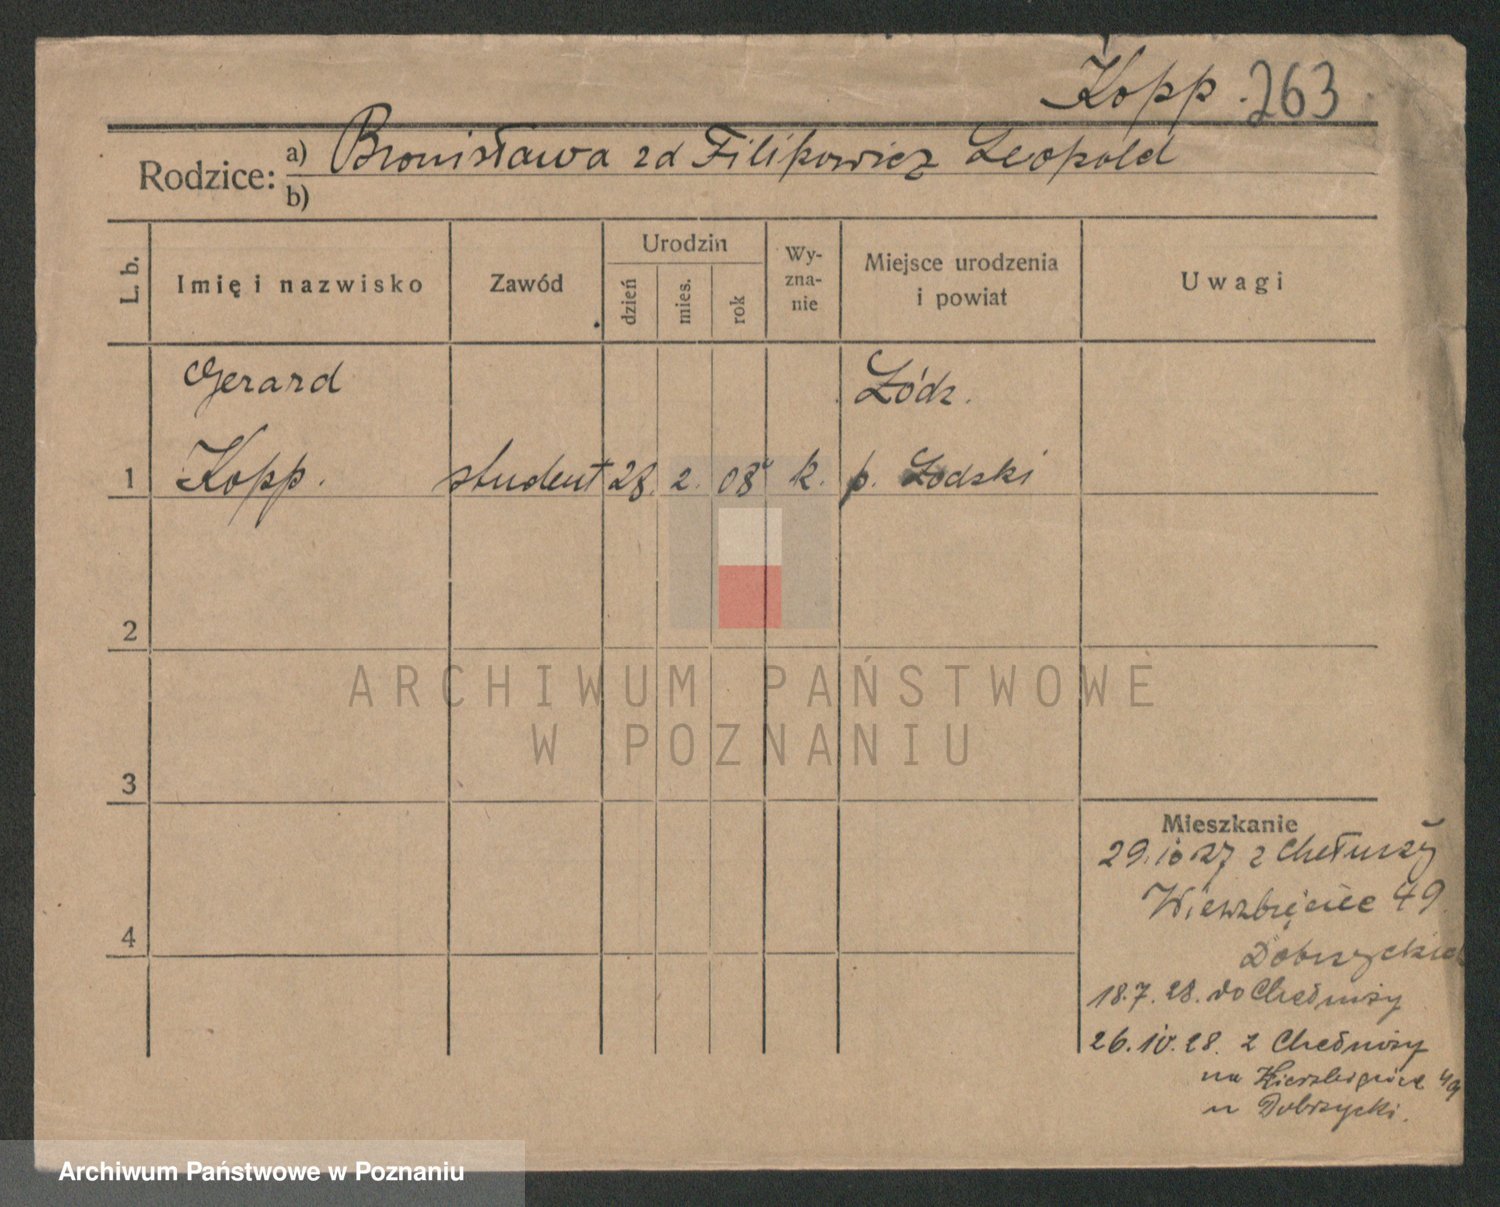 Kopp. 263
Rodzice:
a) Bronisława zd Filipowicz Leopold
b)
L. b.
Imię i nazwisko
Zawód
Urodzin
dzień
mies.
rok
Wy-
zna-
nie
Miejsce urodzenia
i powiat
Uwagi
Gerard
Łódz.
1 Kopp. student 28. 2. 08 k. p. Łodzki
2
ARCHIWUM PAŃSTWOWE
W POZNANIU
3
Mieszkanie
29.10 27 z Chełmży
Wierzbięcice 49
4
Dobrzyckich
18.7.28. do Chełmży
26.IV.28. z Chełmży
na Wierzbięcice 49
u Dobrzycki.
Archiwum Państwowe w Poznaniu